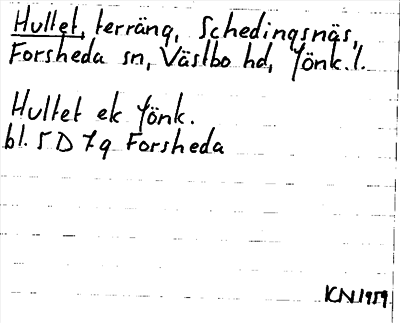 Hultet, terräng, Schedingsnäs,
Forsheda sn, Västbo hd, Jönk.l.
Hultet ek Jönk.
bl. 5 D 7g Forsheda
KN 1959